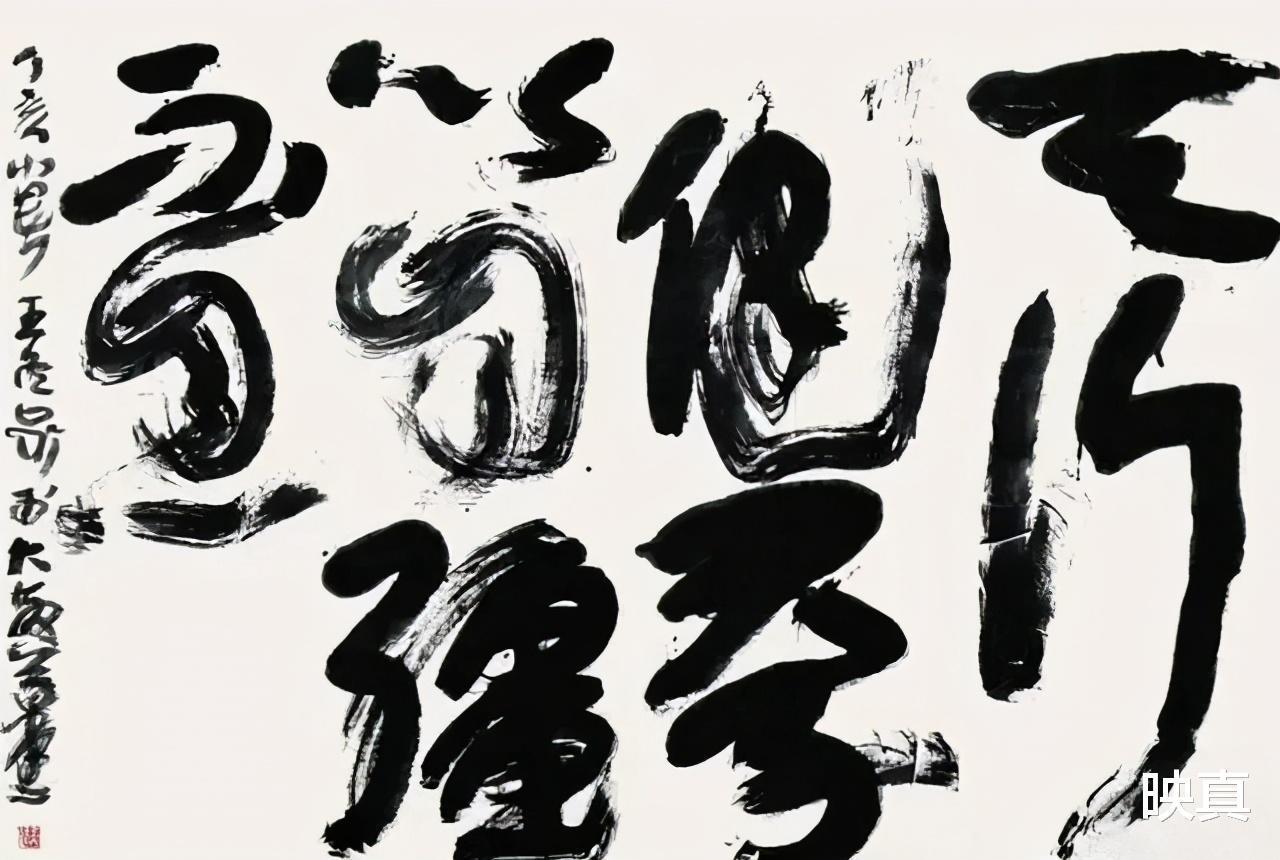 天行
健君子
以自彊
不息
丁亥 王冬龄书
映真